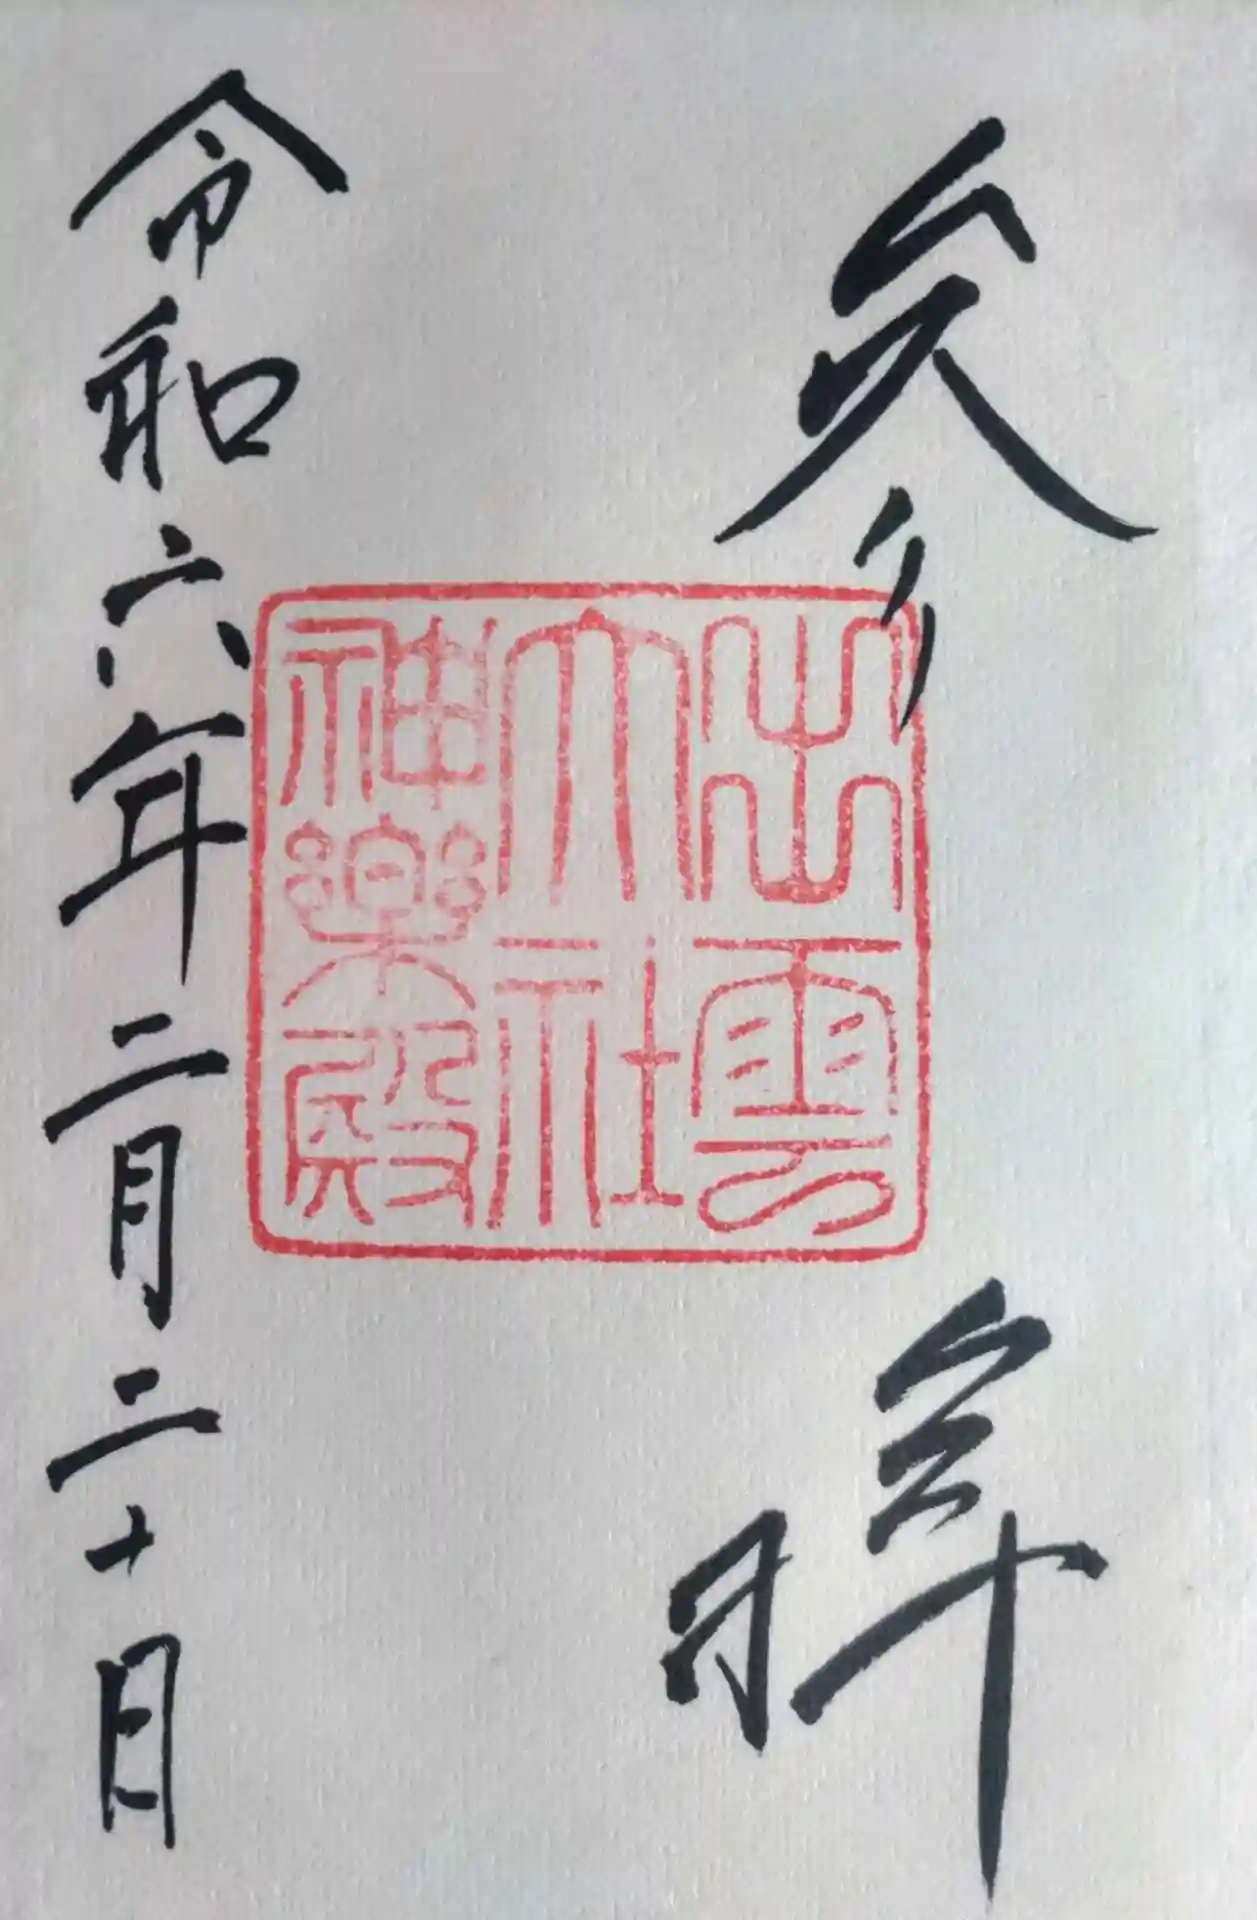 参拝
出雲
大社
神樂殿
令和六年二月二十日